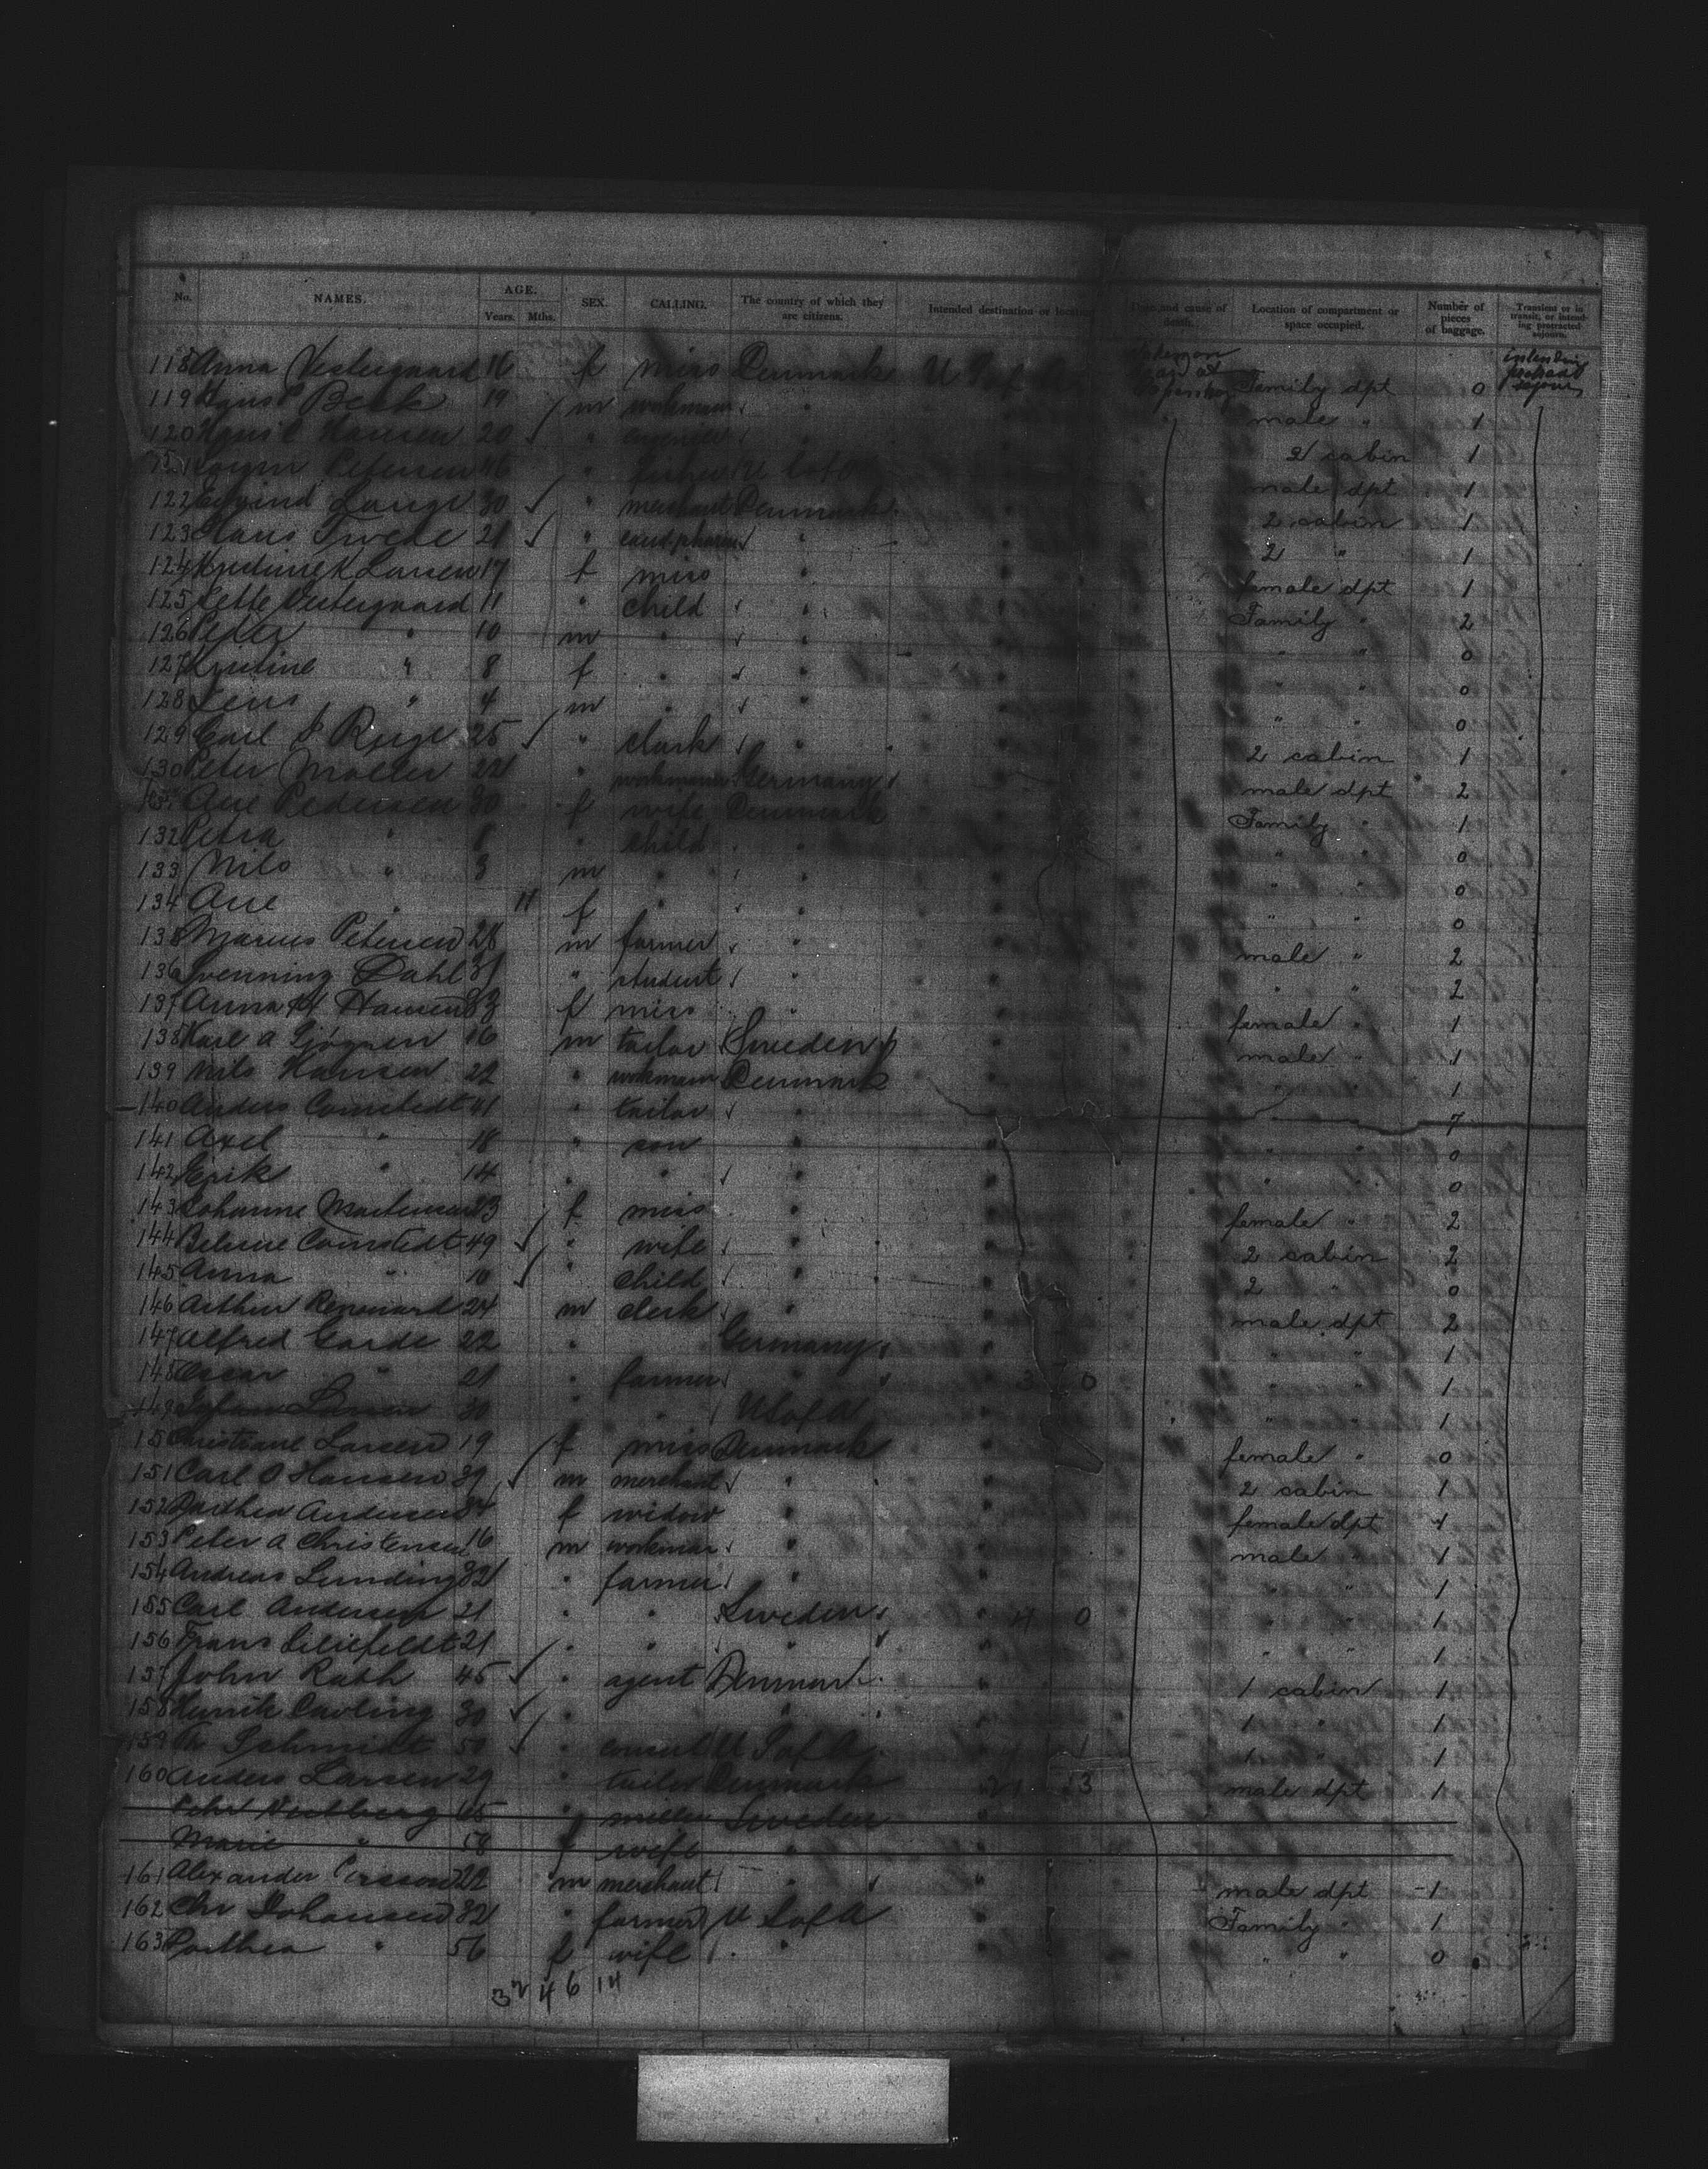 No. NAMES. AGE. Years. Mths. SEX. CALLING. The country of which they are citizens. Intended destination or location Date and cause of death. Location of compartment or space occupied. Number of pieces of baggage. Transient or in transit, or intending protracted sojourn.
118 Anna Vestergaard 16 f miss Denmark U S of A Family dpt 0
119 Hans Beck 19 m workman " male " 1
120 Hans C Hansen 20 " " 2 cabin 1
Petersen 46 " U S of A male dpt 1
122 Eyvind Lange 30 " merchant Denmark 2 cabin 1
123 Hans Tvede 21 " cand. pharm " 2 " 1
124 K Larsen 17 f miss " female dpt 1
125 Vestergaard 11 " child " Family " 2
126 Peter " 10 m " " " " 0
127 Kristine " 8 f " " " " 0
128 Jens " 4 m " " " " 0
129 Carl 25 " clark " 2 cabin 1
130 Peter Moller 22 " workman Germany male dpt 2
Ane Pedersen 30 f wife Denmark Family " 1
132 Petra " 6 " child " " " 0
133 Nils " 3 m " " " " 0
134 Ane " 11 f " " " " 0
135 Marius Petersen 28 m farmer " male " 2
136 Svenning Dahl 31 " student " " " 2
137 Anna M Hansen 33 f miss " female " 1
138 Karl A 16 m tailor Sweden male " 1
139 Nils Hansen 22 " workman Denmark " 1
140 Anders Cornstedt 41 " tailor " " 7
141 Axel " 18 " son " " " 0
142 Erik " 14 " " " " " 0
143 Johanne Mortensen 23 f miss " female " 2
144 Cornstedt 49 " wife " 2 cabin 2
145 Anna " 10 " child " 2 " 0
146 Arthur Renouard 24 m clerk " male dpt 2
147 Alfred Garde 22 " Germany " " 1
148 Oscar " 21 " farmer " 3 0 " " 1
149 30 " " U S of A " " 1
150 Christiane Larsen 19 f miss Denmark female " 0
151 Carl O Hansen 39 m merchant " 2 cabin 1
152 Dorthea Andersen 34 f widow " female dpt 1
153 Peter A Christensen 16 m workman " male " 1
154 Andreas Lunding 32 " farmer " " " 1
155 Carl Andersen 21 " " Sweden 4 0 " " 1
156 Frans Liliefeldt 21 " " " " " 1
157 John Rath 45 " agent Denmark 1 cabin 1
158 Henrik Cavling 30 " " 1 " 1
159 Th Schmidt 50 " consul U S of A 1 " 1
160 Anders Larsen 29 " tailor Denmark 21 13 male dpt 1
Pehr 65 " miller Sweden
Marie " 58 f wife "
161 Alexander Persson 22 m merchant " male dpt 1
162 Chr Johansen 32 " farmer U S of A Family " 1
163 Dorthea " 56 f wife " " " 0
32 4 6 14